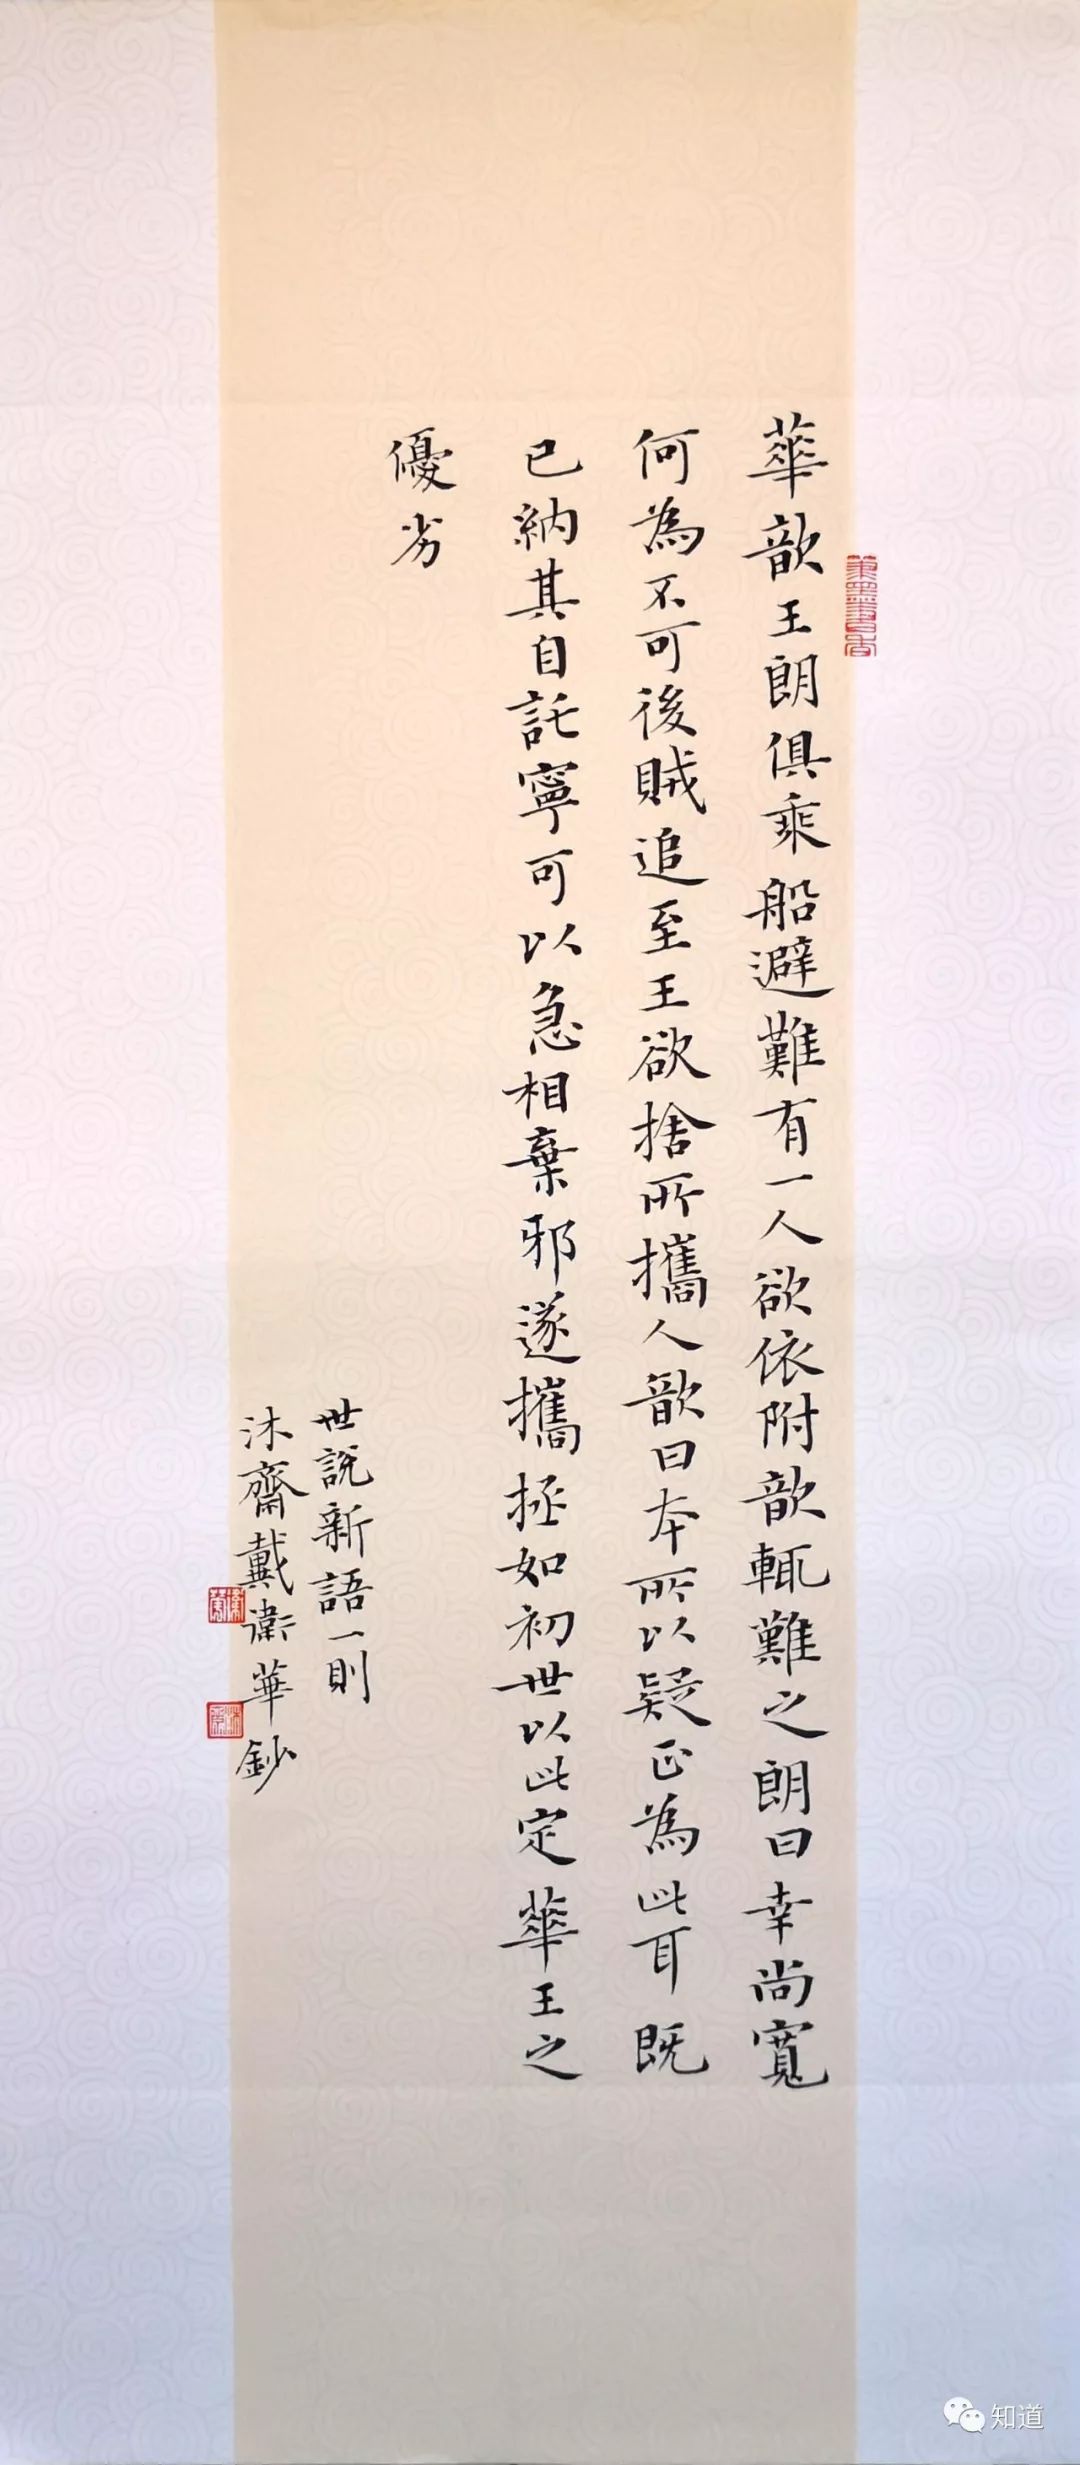 華歆王朗俱乘船避難有一人欲依附歆輒難之朗曰幸尚寬
何為不可後賊追至王欲捨所攜人歆曰本所以疑正為此耳既
已納其自託寧可以急相棄邪遂攜拯如初世以此定華王之
優劣
世說新語一則
沐齋戴衛華鈔
知道